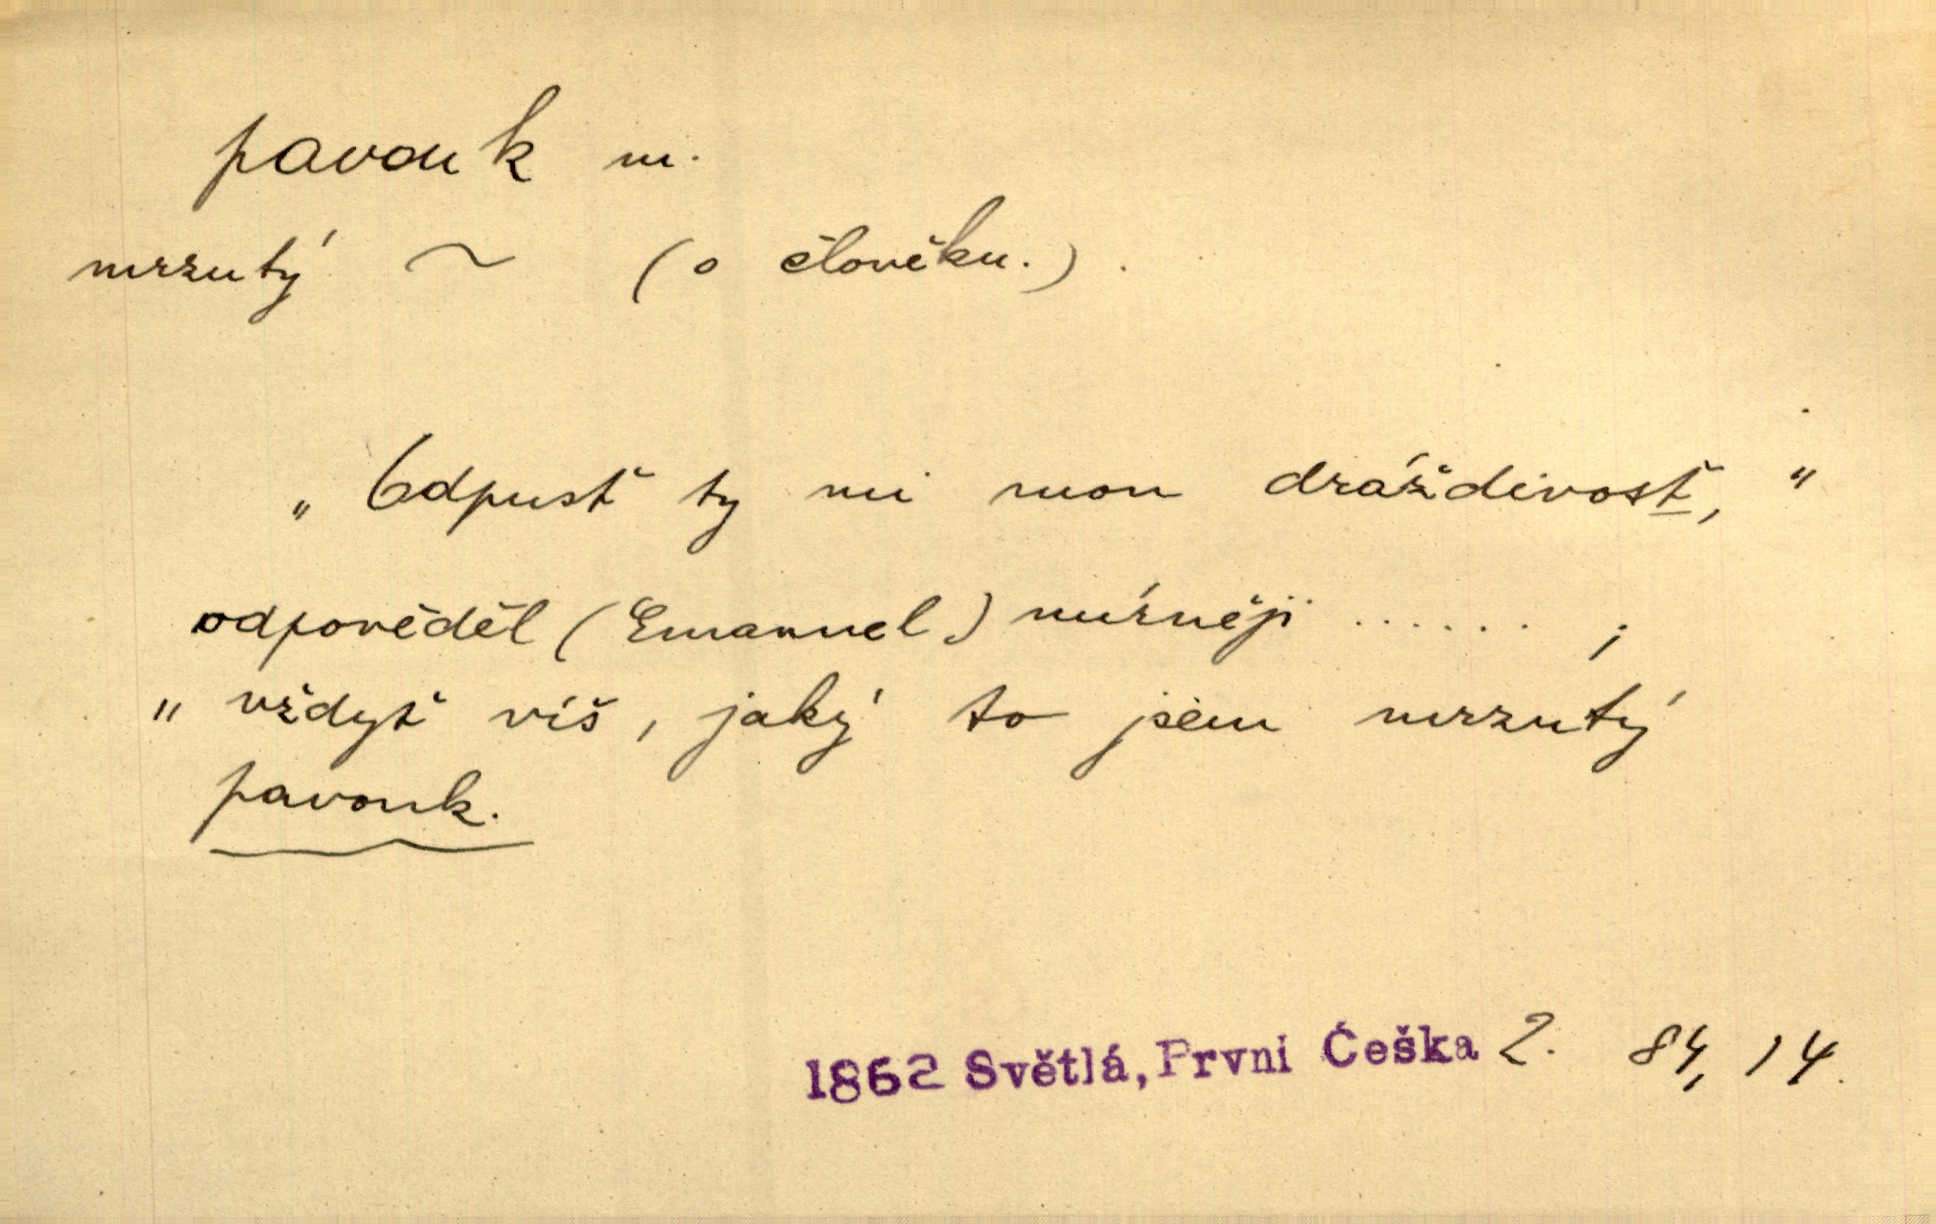 pavouk m.
mrzutý ~ (o člověku.).
„Odpusť ty mi mou dráždivosť,“
odpověděl (Emanuel) mírněji ...... ;
„vždyť víš, jaký to jsem mrzutý
pavouk.
1862 Světlá, První Češka 2. 84, 14.